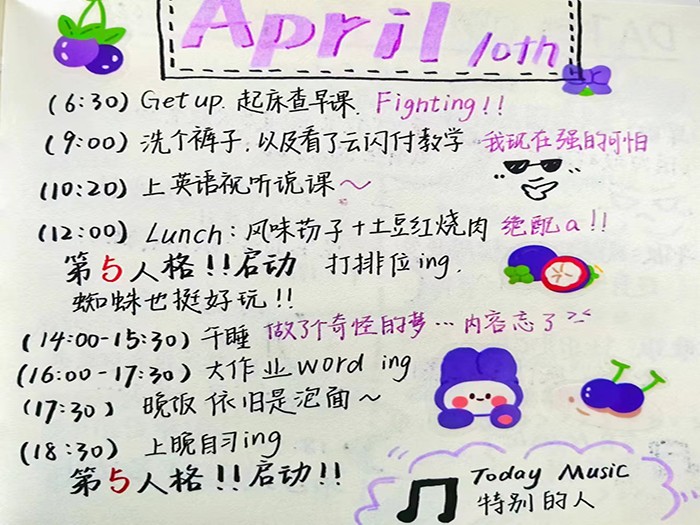 April 10th
(6:30) Get up. 起床查早课. Fighting!!
(9:00) 洗个裤子, 以及看了云闪付教学 我现在强的可怕
(10:20) 上英语视听说课～
(12:00) Lunch: 风味茄子+土豆红烧肉 绝配a!!
第5人格!!启动 打排位ing.
蜘蛛也挺好玩!!
(14:00-15:30) 午睡 做了个奇怪的梦…内容忘了
(16:00-17:30) 大作业word ing
(17:30) 晚饭依旧是泡面～
(18:30) 上晚自习ing
第5人格!!启动!!
Today Music
特别的人